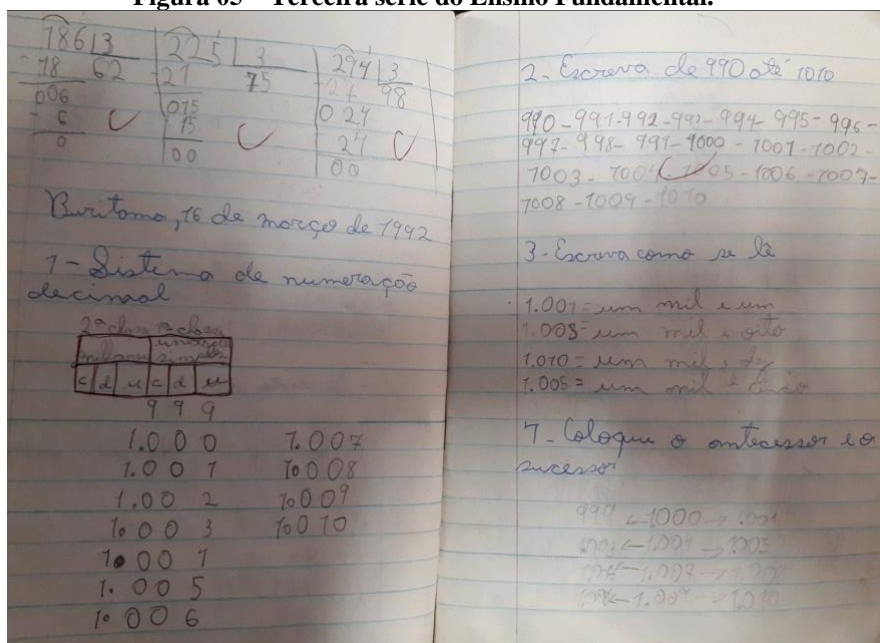 Figura 03 – Terceira série do Ensino Fundamental.
186 3
- 18 62
006
- 6
0
225 3
- 21 75
015
15
00
294 3
- 27 98
024
24
00
Buritama, 16 de março de 1992
1 - Sistema de numeração
decimal
2ª classe 1ª classe
milhares simples
c d u c d u
9 9 9
1.000 1.007
1.001 1.008
1.002 1.009
1.003 1.010
1.005
1.006
2 - Escreva de 990 até 1010
990 - 991 - 992 - 993 - 994 - 995 - 996 -
997 - 998 - 999 - 1000 - 1001 - 1002 -
1003 - 1004 - 1005 - 1006 - 1007 -
1008 - 1009 - 1010
3 - Escreva como se lê
1.001 = um mil e um
1.008 = um mil e oito
1.010 = um mil e dez
1.005 = um mil e
7 - Coloque o antecessor e o
sucessor
999 ← 1000 → 1.001